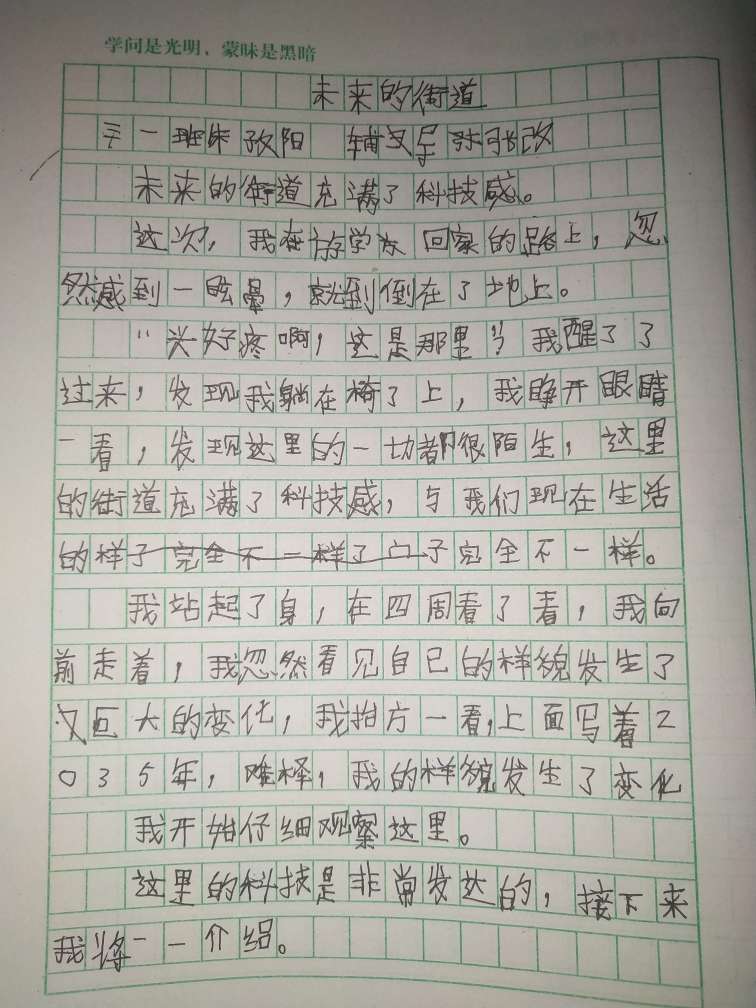 学问是光明，蒙昧是黑暗
未来的街道
三一班 孜阳 辅导 张改
未来的街道充满了科技感。
这次，我在放学 回家的路上，忽
然感到一眩晕，就到倒在了地上。
“头好疼啊，这是那里”我醒了了
过来，发现我躺在椅了上，我睁开眼睛
一看，发现这里的一切都很陌生，这里
的街道充满了科技感，与我们现在生活
的样子完全不一样了 子完全不一样。
我站起了身，在四周看了看，我向
前走着，我忽然看见自己的样貌发生了
巨大的变化，我抬方一看，上面写着2
035年，难怪，我的样貌发生了变化
我开始仔细观察这里。
这里的科技是非常发达的，接下来
我将一一介绍。